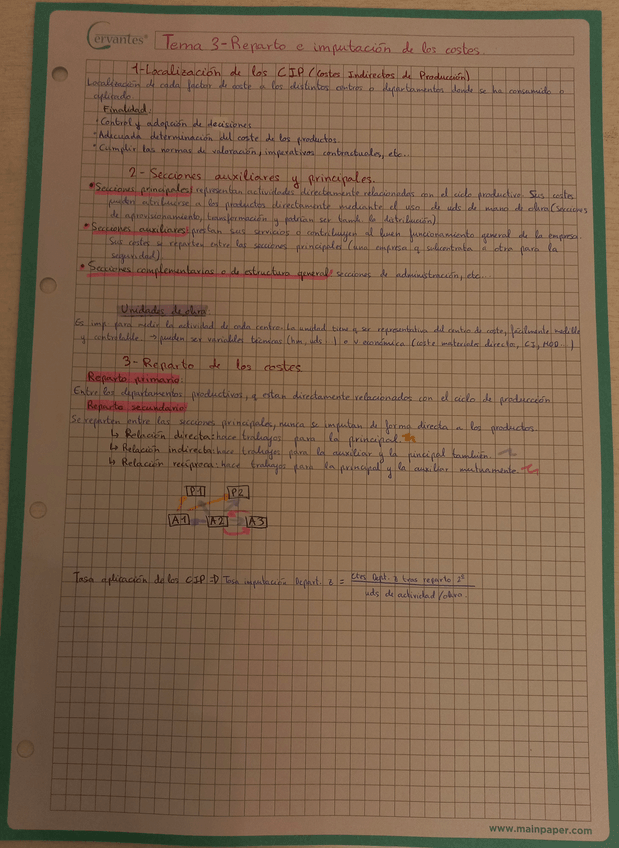 Cervantes®
Tema 3-Reparto e imputación de los costes.
1-Localización de los CIP (Costes Indirectos de Producción)
Localización de cada factor de coste a los distintos centros o departamentos donde se ha consumido o
aplicado.
Finalidad:
·Control y adopción de decisiones
·Adecuada determinación del coste de los productos
·Cumplir las normas de valoración, imperativos contractuales, etc...
2-Secciones auxiliares y principales.
•Secciones principales: representan actividades directamente relacionadas con el ciclo productivo. Sus costes
pueden atribuirse a los productos directamente mediante el uso de uds de mano de obra (secciones
de aprovisionamiento, transformación y podrían ser tamb la distribución).
•Secciones auxiliares: prestan sus servicios o contribuyen al buen funcionamiento general de la empresa.
Sus costes se reparten entre las secciones principales (una empresa q subcontrata a otra para la
seguridad).
•Secciones complementarias o de estructura general: secciones de administración, etc
Unidades de obra
Es imp. para medir la actividad de cada centro. La unidad tiene q ser representativa del centro de coste, fácilmente medible
y controlable. → pueden ser variables técnicas (hm, uds...) o v económica (coste materiales directo, CI, MOD...)
3-Reparto de los costes
Reparto primario:
Entre los departamentos productivos, q estan directamente relacionados con el ciclo de producción
Reparto secundario
Se reparten entre las secciones principales, nunca se imputan de forma directa a los productos.
↳ Relación directa: hace trabajos para la principal
↳ Relación indirecta: hace trabajos para la auxiliar y la principal también.
↳ Relación recíproca: hace trabajos para la principal y la auxiliar mutuamente.
P1 P2
A1 A2 A3
Tasa aplicación de los CIP => Tasa imputación Depart. = Ctes Dept. tras reparto 2º
uds de actividad/obra
www.mainpaper.com